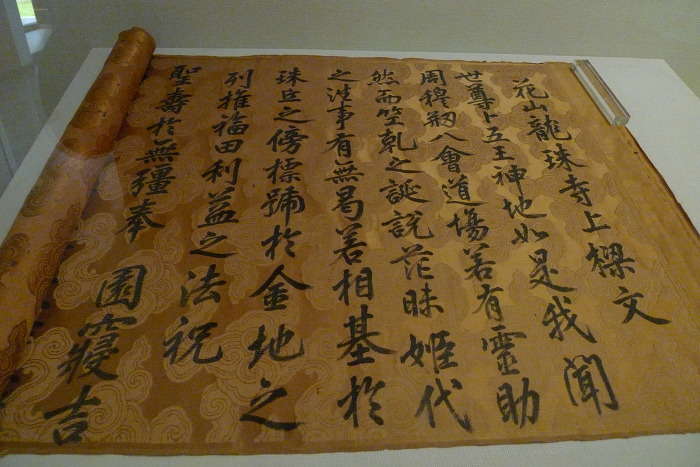 花山龍珠寺上樑文
世尊卜五王神地如是我聞
周穆刱八會道場若有靈助
然而竺乾之誕說茫昧姬代
之涉事有無曷若相基於
珠丘之傍標號於金地之
列推福田利益之法祝
聖壽於無疆奉 園寢吉